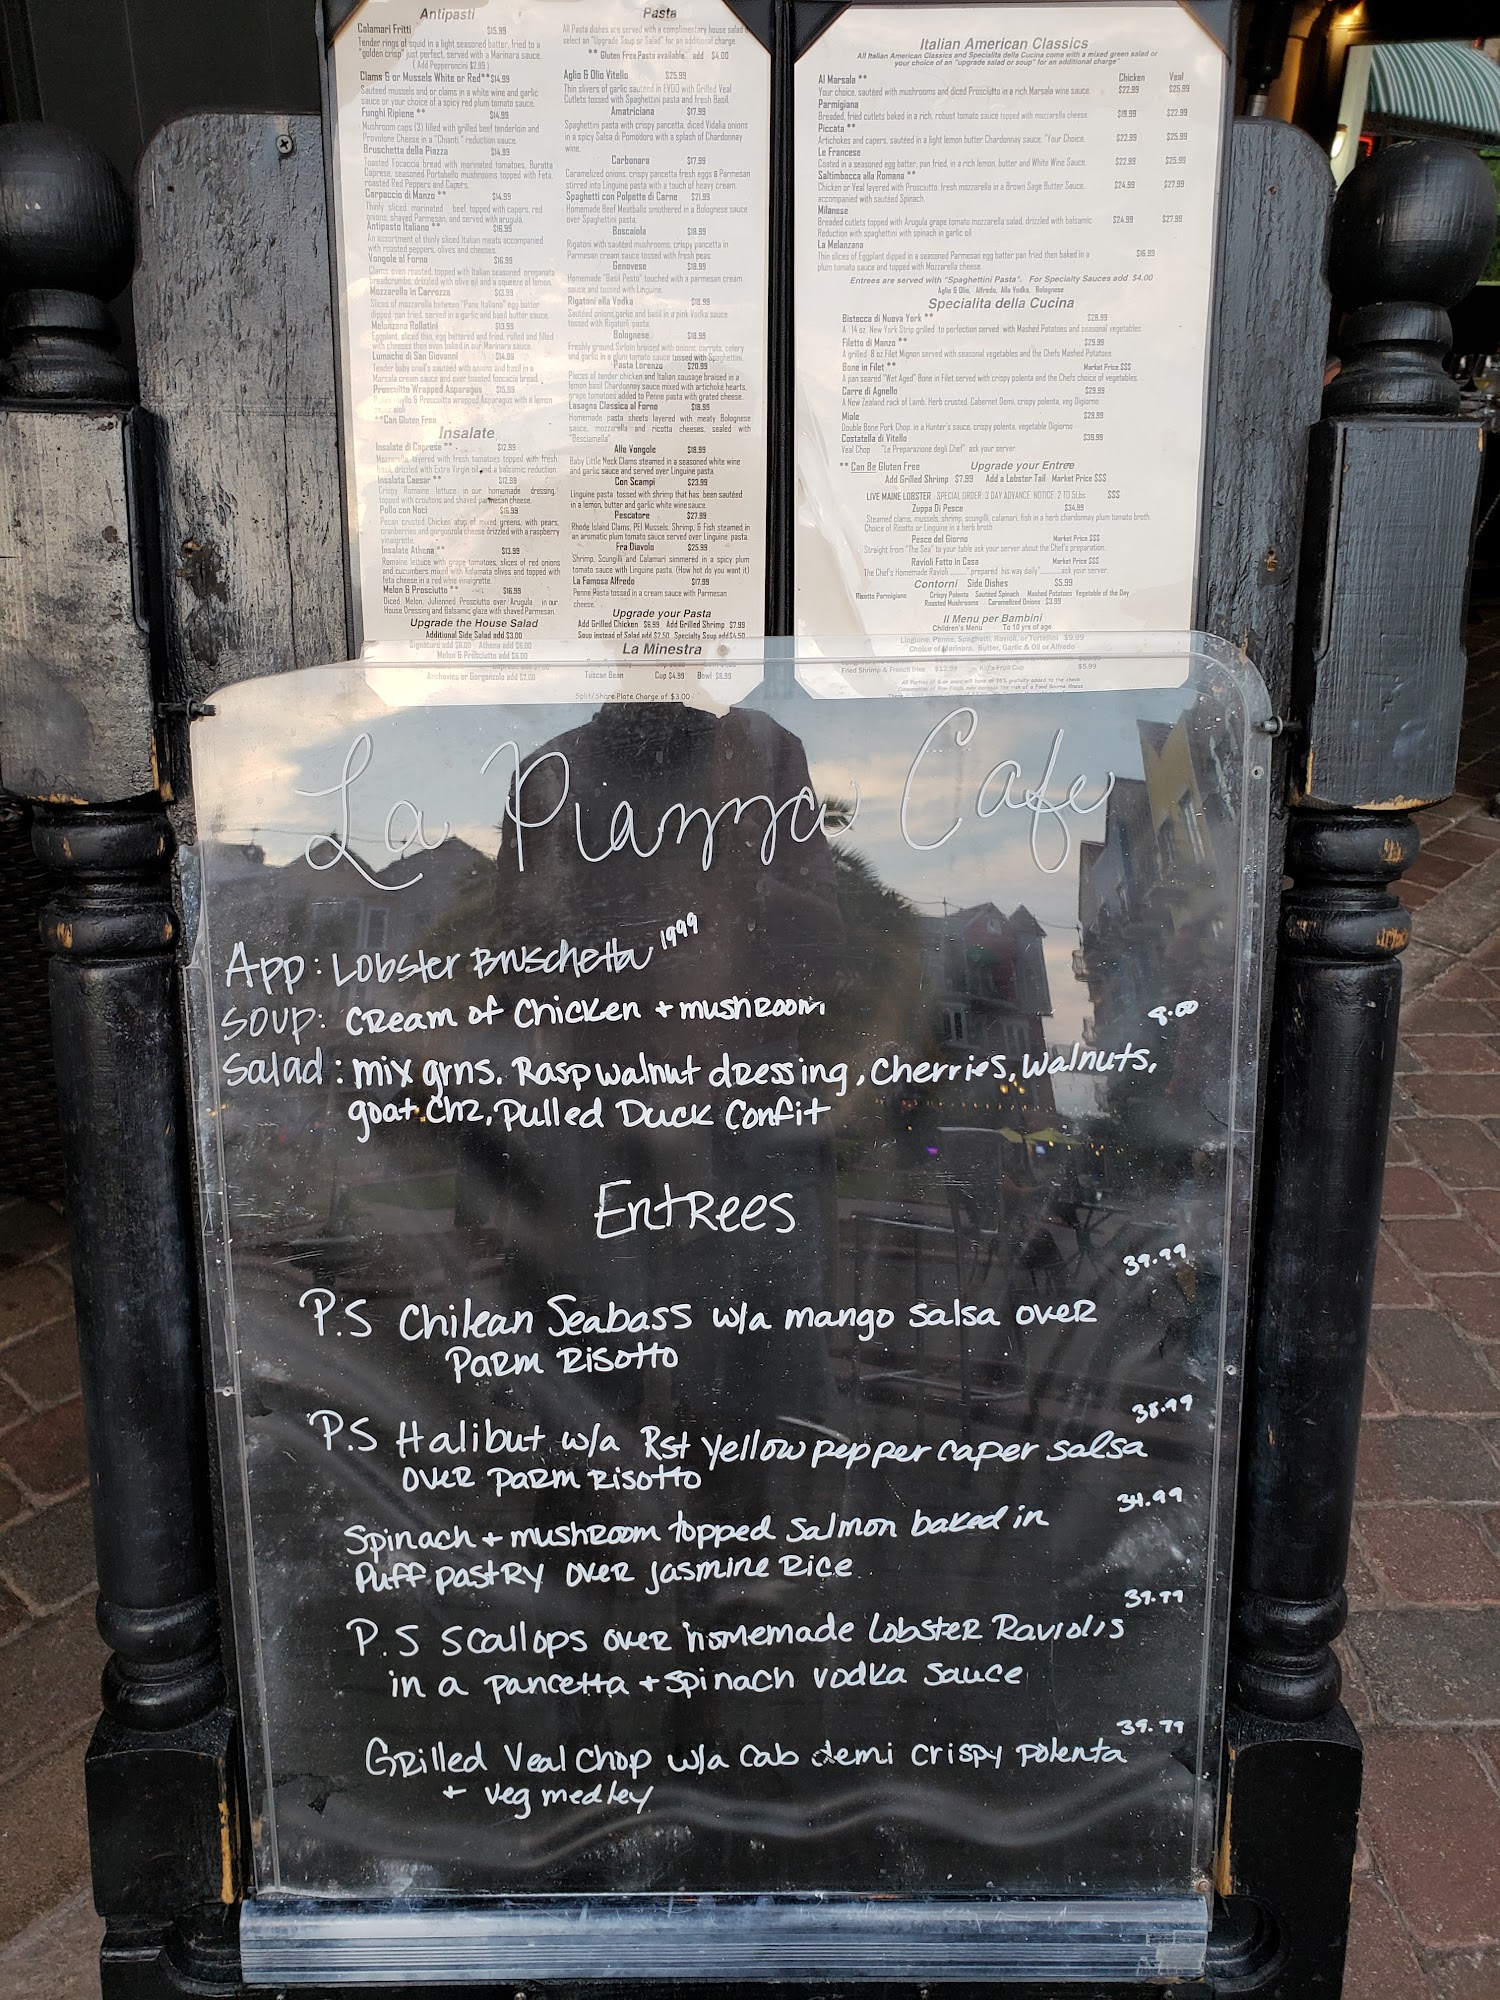 Antipasti
Calamari Fritti $15.99
Tender rings of squid in a light seasoned batter, fried to a
"golden crisp" just perfect, served with a Marinara sauce.
( Add Pepperoncini $2.99 )
Clams & or Mussels White or Red**$14.99
Sautéed mussels and or clams in a white wine and garlic
sauce or your choice of a spicy red plum tomato sauce.
Funghi Ripiene ** $14.99
Mushroom caps (3) filled with grilled beef tenderloin and
Provolone Cheese in a "Chianti " reduction sauce.
Bruschetta della Piazza $14.99
Toasted Focaccia bread with marinated tomatoes, Buratta
Caprese, seasoned Portabello mushrooms topped with Feta,
roasted Red Peppers and Capers.
Carpaccio di Manzo ** $14.99
Thinly sliced marinated beef, topped with capers, red
onions, shaved Parmesan, and served with arugula.
Antipasto Italiano ** $16.99
An assortment of thinly sliced Italian meats accompanied
with roasted peppers, olives and cheeses.
Vongole al Forno $16.99
Clams oven roasted, topped with Italian seasoned oreganata
breadcrumbs, drizzled with olive oil and a squeeze of lemon.
Mozzarella in Carrozza $13.99
Slices of mozzarella between "Pane Italiano" egg batter
dipped pan fried, served in a garlic and basil butter sauce.
Melanzana Rollatini $13.99
Eggplant, sliced thin, egg battered and fried, rolled and filled
with cheeses then oven baked in our Marinara sauce.
Lumache di San Giovanni $14.99
Tender baby snail's sautéed with onions and basil in a
Marsala cream sauce and over toasted foccacia bread.
Prosciutto Wrapped Asparagus $15.99
& Prosciutto wrapped Asparagus with a lemon
**Can Gluten Free
Insalate
Insalate di Caprese ** $12.99
Mozzarella layered with fresh tomatoes topped with fresh
basil, drizzled with Extra Virgin oil and a balsamic reduction.
Insalata Caesar ** $12.99
Crispy Romaine lettuce in our homemade dressing
topped with croutons and shaved parmesan cheese.
Pollo con Noci $16.99
Pecan crusted Chicken atop of mixed greens, with pears,
cranberries and gorgonzola cheese drizzled with a raspberry
vinaigrette.
Insalate Athena ** $13.99
Romaine lettuce with grape tomatoes, slices of red onions
and cucumbers mixed with Kalamata olives and topped with
feta cheese in a red wine vinaigrette.
Melon & Prosciutto ** $16.99
Diced Melon, Julienned Prosciutto over Arugula in our
House Dressing and Balsamic glaze with shaved Parmesan.
Upgrade the House Salad
Additional Side Salad add $3.00
Signature add $6.00 Athena add $6.00
Melon & Prosciutto add $6.00
Anchovies or Gorgonzola add $2.00
Pasta
All Pasta dishes are served with a complimentary house salad
select an "Upgrade Soup or Salad" for an additional charge.
** Gluten Free Pasta available add $4.00
Aglio & Olio Vitello $25.99
Thin slivers of garlic sautéed in EVOO with Grilled Veal
Cutlets tossed with Spaghettini pasta and fresh Basil.
Amatriciana $17.99
Spaghettini pasta with crispy pancetta, diced Vidalia onions
in a spicy Salsa di Pomodoro with a splash of Chardonnay
wine.
Carbonara $17.99
Caramelized onions, crispy pancetta fresh eggs & Parmesan
stirred into Linguine pasta with a touch of heavy cream.
Spaghetti con Polpette di Carne $21.99
Homemade Beef Meatballs smothered in a Bolognese sauce
over Spaghettini pasta.
Boscaiola $18.99
Rigatoni with sautéed mushrooms, crispy pancetta in
Parmesan cream sauce tossed with fresh peas.
Genovese $18.99
Homemade "Basil Pesto" touched with a parmesan cream
sauce and tossed with Linguine.
Rigatoni alla Vodka $18.99
Sautéed onions,garlic and basil in a pink Vodka sauce
tossed with Rigatoni pasta.
Bolognese $18.99
Freshly ground Sirloin braised with onions, carrots, celery
and garlic in a plum tomato sauce tossed with Spaghettini.
Pasta Lorenzo $20.99
Pieces of tender chicken and Italian sausage braised in a
lemon basil Chardonnay sauce mixed with artichoke hearts,
grape tomatoes added to Penne pasta with grated cheese.
Lasagna Classica al Forno $18.99
Homemade pasta sheets layered with meaty Bolognese
sauce, mozzarella and ricotta cheeses, sealed with
"Besciamella"
Alle Vongole $18.99
Baby Little Neck Clams steamed in a seasoned white wine
and garlic sauce and served over Linguine pasta.
Con Scampi $23.99
Linguine pasta tossed with shrimp that has been sautéed
in a lemon, butter and garlic white wine sauce.
Pescatore $27.99
Rhode Island Clams, PEI Mussels, Shrimp, & Fish steamed in
an aromatic plum tomato sauce served over Linguine pasta.
Fra Diavolo $25.99
Shrimp, Scungilli and Calamari simmered in a spicy plum
tomato sauce with Linguine pasta. (How hot do you want it)
La Famosa Alfredo $17.99
Penne Pasta tossed in a cream sauce with Parmesan
cheese.
Upgrade your Pasta
Add Grilled Chicken $6.99 Add Grilled Shrimp $7.99
Soup instead of Salad add $2.50 Specialty Soup add$4.50
La Minestra
Tuscan Bean Cup $4.99 Bowl $6.99
Split/Share Plate Charge of $3.00
Italian American Classics
All Italian American Classics and Specialita della Cucina come with a mixed green salad or
your choice of an "upgrade salad or soup" for an additional charge"
Chicken Veal
Al Marsala **
Your choice, sautéed with mushrooms and diced Prosciutto in a rich Marsala wine sauce. $22.99 $25.99
Parmigiana
Breaded, fried cutlets baked in a rich, robust tomato sauce topped with mozzarella cheese. $19.99 $22.99
Piccata **
Artichokes and capers, sautéed in a light lemon butter Chardonnay sauce, "Your Choice. $22.99 $25.99
Le Francese
Coated in a seasoned egg batter, pan fried, in a rich lemon, butter and White Wine Sauce. $22.99 $25.99
Saltimbocca alla Romana **
Chicken or Veal layered with Prosciutto, fresh mozzarella in a Brown Sage Butter Sauce, $24.99 $27.99
accompanied with sautéed Spinach.
Milanese
Breaded cutlets topped with Arugula grape tomato mozzarella salad, drizzled with balsamic $24.99 $27.99
Reduction with spaghettini with spinach in garlic oil
La Melanzana
Thin slices of Eggplant dipped in a seasoned Parmesan egg batter pan fried then baked in a $16.99
plum tomato sauce and topped with Mozzarella cheese.
Entrees are served with "Spaghettini Pasta". For Specialty Sauces add $4.00
Aglio & Olio, Alfredo, Alla Vodka, Bolognese
Specialita della Cucina
Bistecca di Nuova York ** $28.99
A 14 oz New York Strip grilled to perfection served with Mashed Potatoes and seasonal vegetables.
Filetto di Manzo ** $29.99
A grilled 8 oz Filet Mignon served with seasonal vegetables and the Chefs Mashed Potatoes
Bone in Filet ** Market Price $$$
A pan seared "Wet Aged" Bone in Filet served with crispy polenta and the Chefs choice of vegetables.
Carre di Agnello $29.99
A New Zealand rack of Lamb, Herb crusted, Cabernet Demi, crispy polenta, veg Digiorno
Miale $29.99
Double Bone Pork Chop, in a Hunter's sauce, crispy polenta, vegetable Digiorno
Costatella di Vitello $39.99
Veal Chop "Le Preparazione degli Chef" ask your server.
** Can Be Gluten Free Upgrade your Entree
Add Grilled Shrimp $7.99 Add a Lobster Tail Market Price $$$
LIVE MAINE LOBSTER : SPECIAL ORDER 3 DAY ADVANCE NOTICE: 2 TO 5Lbs $$$
Zuppa Di Pesce $34.99
Steamed clams, mussels, shrimp, scungilli, calamari, fish in a herb chardonnay plum tomato broth.
Choice of Risotto or Linguine in a herb broth
Pesce del Giorno Market Price $$$
Straight from "The Sea" to your table ask your server about the Chef's preparation.
Ravioli Fatto in Casa Market Price $$$
The Chef's Homemade Ravioli ..........."prepared his way daily"..............ask your server.
Contorni Side Dishes $5.99
Risotto Parmigiano Crispy Polenta Sautéed Spinach Mashed Potatoes Vegetable of the Day
Roasted Mushrooms Caramelized Onions $3.99
Il Menu per Bambini
Children's Menu To 10 yrs of age
Linguine, Penne, Spaghetti, Ravioli, or Tortellini $9.99
Choice of Marinara, Butter, Garlic & Oil or Alfredo
Fried Shrimp & French fries $12.99 Kid's Fruit Cup $5.99
La Piazza Cafe
App: Lobster Bruschetta 1999
Soup: Cream of Chicken + mushroom 8.00
Salad: mix grns. Rasp walnut dressing, Cherries, walnuts,
goat chz, Pulled Duck Confit
Entrees
39.99
P.S Chilean Seabass w/a mango salsa over
Parm Risotto
38.99
P.S Halibut w/a Rst yellow pepper caper salsa
over parm risotto
34.99
Spinach + mushroom topped salmon baked in
Puff pastry over jasmine rice
39.99
P.S Scallops over homemade Lobster Raviolis
in a pancetta + spinach vodka sauce
39.99
Grilled Veal chop w/a cab demi crispy polenta
+ veg medley